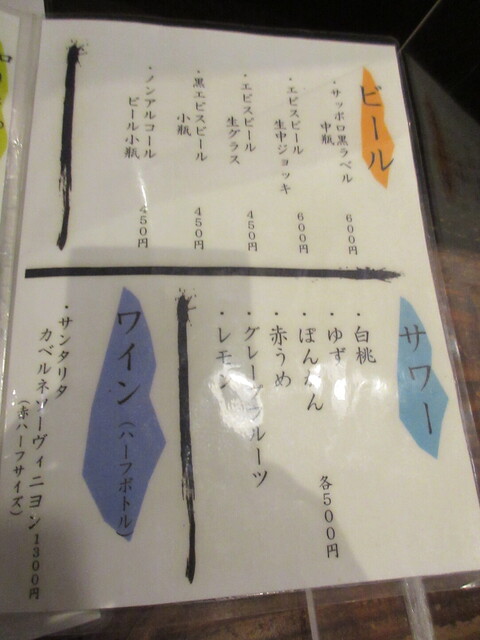 ビール
・サッポロ黒ラベル
中瓶
600円
・エビスビール
生中ジョッキ
600円
・エビスビール
生グラス
450円
・黒エビスビール
小瓶
450円
・ノンアルコール
ビール小瓶
450円
サワー
・白桃
・ゆず
・ぽんかん
・赤うめ
・グレープフルーツ
・レモン
各500円
ワイン(ハーフボトル)
・サンタリタ
カベルネソーヴィニヨン1300円
(赤ハーフサイズ)